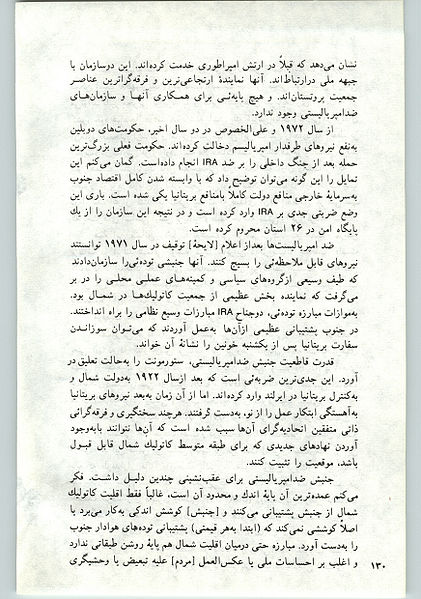 نشان می‌دهد که قبلاً در ارتش امپراطوری خدمت کرده‌اند. این دوسازمان با
جبهه ملی درارتباط‌اند. آنها نمایندهٔ ارتجاعی‌ترین و فرقه‌گراترین عناصر
جمعیت پروتستان‌اند. و هیچ پایه‌ئی برای همکاری آنها و سازمان‌های
ضدامپریالیستی وجود ندارد.
از سال ۱۹۷۲ و علی‌الخصوص در دو سال اخیر، حکومت‌های دوبلین
به‌نفع نیروهای طرفدار امپریالیسم دخالت کرده‌اند. حکومت فعلی بزرگ‌ترین
حمله بعد از جنگ داخلی را بر ضد IRA انجام داده‌است. گمان می‌کنم این
تمایل را این گونه می‌توان توضیح داد که با وابسته شدن کامل اقتصاد جنوب
به‌سرمایهٔ خارجی منافع دولت کاملاً بامنافع بریتانیا یکی شده است. باری این
وضع ضربتی جدی بر IRA وارد کرده است و در نتیجه این سازمان را از یك
پایگاه امن در ۲۶ استان محروم کرده است.
ضد امپریالیست‌ها بعداز اعلام [لایحهٔ] توقیف در سال ۱۹۷۱ توانستند
نیروهای قابل ملاحظه‌ئی را بسیج کنند. آنها جنبشی توده‌ئی‌را سازمان‌دادند
که طیف وسیعی ازگروه‌های سیاسی و کمیته‌های عملی محلی را در بر
می‌گرفت که نماینده بخش عظیمی از جمعیت کاتولیك‌ها در شمال بود.
به‌موازات مبارزه توده‌ئی، دوجناح IRA مبارزات وسیع نظامی را براه انداختند.
در جنوب پشتیبانی عظیمی ازآن‌ها به‌عمل آوردند که می‌توان سوزاندن
سفارت بریتانیا پس از یکشنبه خونین را نشانهٔ آن خواند.
قدرت قاطعیت جنبش ضدامپریالیستی، ستورمونت را به‌حالت تعلیق در
آورد. این جدی‌ترین ضربه‌ئی است که بعد ازسال ۱۹۲۲ به‌دولت شمال و
به‌کنترل بریتانیا در ایرلند وارد کرده‌اند. اما از آن زمان به‌بعد نیروهای بریتانیا
به‌آهستگی ابتکار عمل را از نو، به‌دست گرفتند. هرچند سختگیری و فرقه‌گرائی
ذاتی متفقین اتحادیه‌گرای آن‌ها سبب شده است که آن‌ها نتوانند بابه‌وجود
آوردن نهادهای جدیدی که برای طبقه متوسط کاتولیك شمال قابل قبول
باشد، موقعیت را تثبیت کنند.
جنبش ضدامپریالیستی برای عقب‌نشینی چندین دلیل داشت. فکر
می‌کنم عمده‌ترین آن پایهٔ اندك و محدود آن است، غالباً فقط اقلیت کاتولیك
شمال از جنبش پشتیبانی می‌کنند و [جنبش] کوشش اندکی به‌کار می‌برد یا
اصلاً کوششی نمی‌کند که (ابتدا به‌هر قیمتی) پشتیبانی توده‌های هوادار جنوب
را به‌دست آورد. مبارزه حتی درمیان اقلیت شمال هم پایهٔ روشن طبقاتی ندارد
و اغلب بر احساسات ملی یا عکس‌العمل [مردم] علیه تبعیض یا وحشیگری
۱۳۰